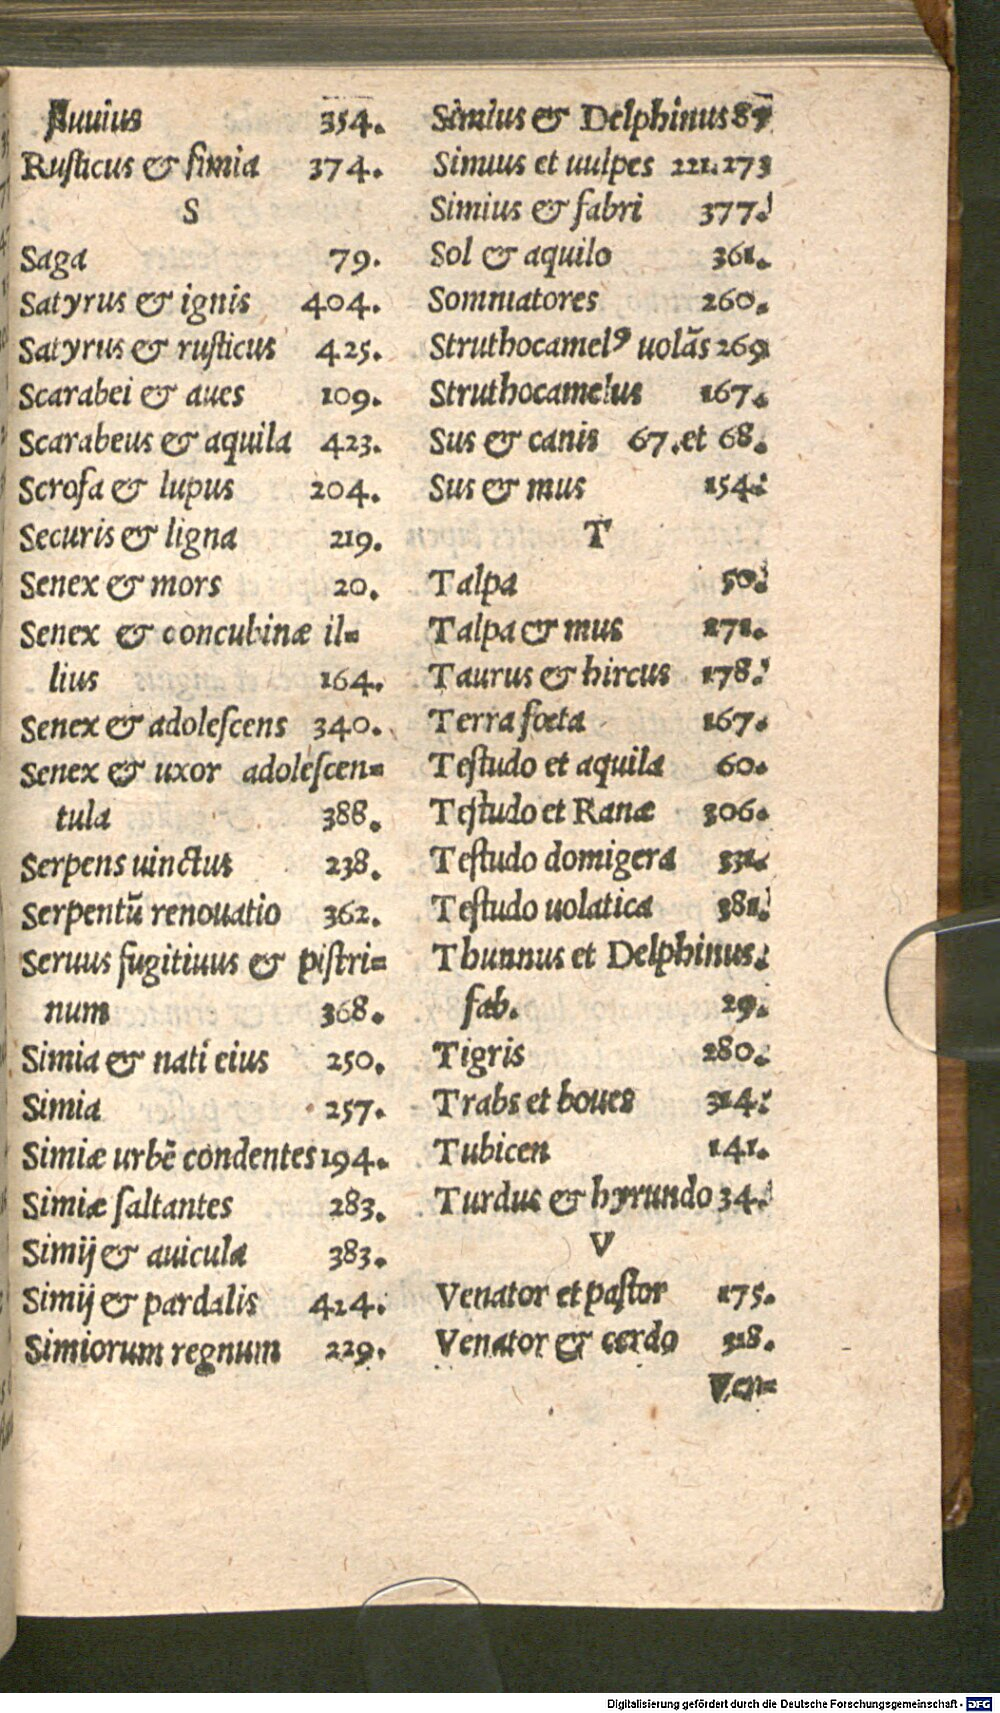 fluuius 354.
Rusticus & simia 374.
S
Saga 79.
Satyrus & ignis 404.
Satyrus & rusticus 425.
Scarabei & aues 109.
Scarabeus & aquila 423.
Scrofa & lupus 204.
Securis & ligna 219.
Senex & mors 20.
Senex & concubinæ il=
lius 164.
Senex & adolescens 340.
Senex & uxor adolescen=
tula 388.
Serpens uinctus 238.
Serpentũ renouatio 362.
Seruus fugitiuus & pistri=
num 368.
Simia & nati eius 250.
Simia 257.
Simiæ urbẽ condentes 194.
Simiæ saltantes 283.
Simij & auicula 383.
Simij & pardalis 414.
Simiorum regnum 229.
Simius & Delphinus 87
Simius et uulpes 221.273
Simius & fabri 377.
Sol & aquilo 361.
Somniatores 260.
Struthocamelꝰ uolãs 269
Struthocamelus 167.
Sus & canis 67. et 68.
Sus & mus 154.
T
Talpa 50.
Talpa & mus 271.
Taurus & hircus 178.
Terra fœta 167.
Testudo et aquila 60.
Testudo et Ranæ 306.
Testudo domigera 331.
Testudo uolatica 381.
Thunnus et Delphinus.
fab. 29.
Tigris 280.
Trabs et boues 314.
Tubicen 141.
Turdus & hyrundo 34.
V
Venator et pastor 175.
Venator & cerdo 318.
Ven=
Digitalisierung gefördert durch die Deutsche Forschungsgemeinschaft - DFG